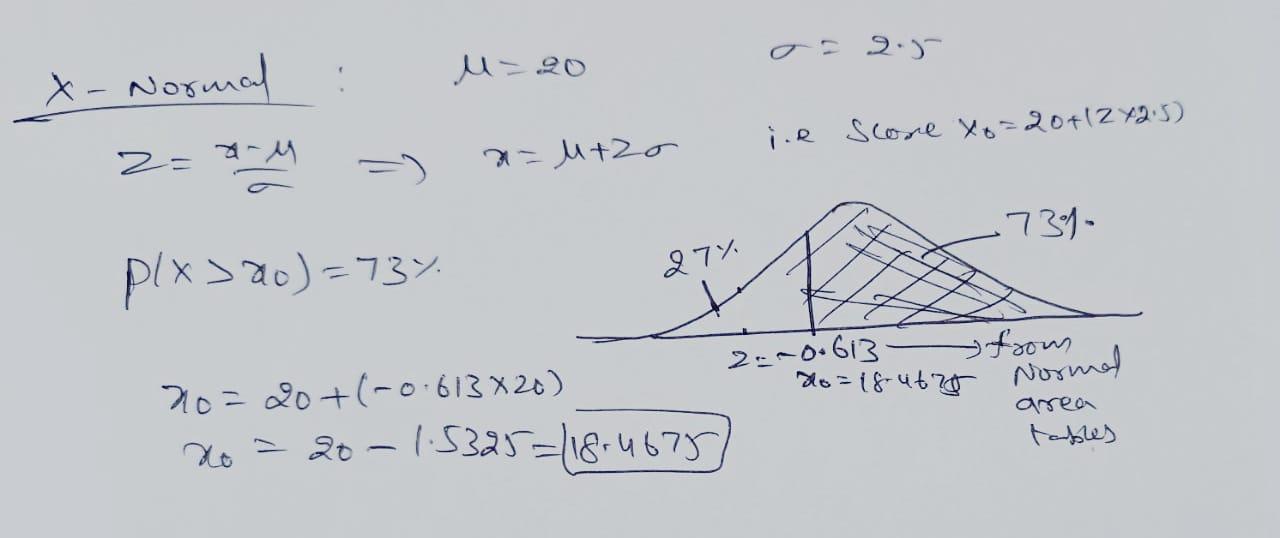 X - Normal : μ = 20 σ = 2.5
Z = x-μ/σ => x = μ+zσ i.e Score X₀ = 20+(Z×2.5)
P(X > x₀) = 73%
27%
73%
Z = -0.613 → from
x₀ = 18.4675 Normal
area
tables
x₀ = 20 + (-0.613×20)
x₀ = 20 - 1.5325 = 18.4675